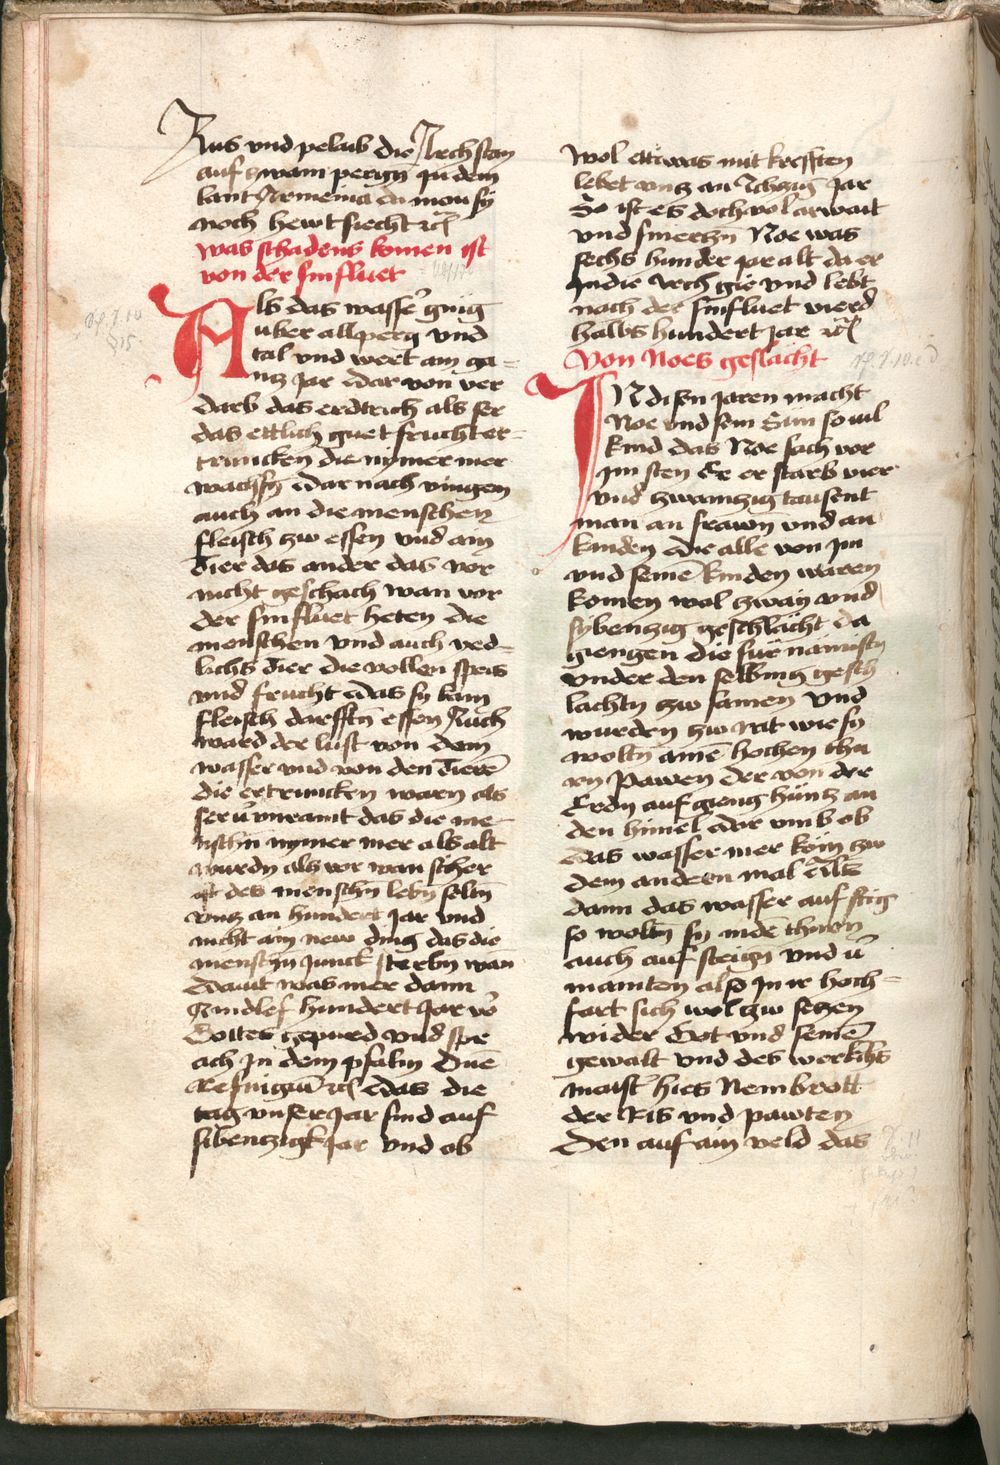 Aus vnd pelaib die Arch stan
auf zwain pergn in dem
lant Armenia da mon sy
noch hewt siecht etc
was schadens komen ist
von der sinfluet
Als das wasser gnüg
uber all perg vnd
tal vnd wert am ga-
ntz jar dar von ver
darb das erdtrich als ser
das ettlich guet frucht er-
truncken die nymer mer
wachsn dar nach viengen
auch an die menschen
fleisch zw essen vnd am
Tier das ander das vor
nicht geschach wan vor
der sinfluet heten die
menschen vnd auch yed-
lichs Tier die vollen speis
vnd frucht das sy kain
fleisch dorfftn essen Auch
ward der lust von dem
wasser vnd von den Tierē
die ertruncken warn als
ser vnraint das die me-
nschn nymer mer als alt
wurdn als vor wan seher
ist des menschn lebn seltn
vntz an hundert jar vnd
nicht ain new ding das die
menschn junck sterbn wan
dauit was mer dann
Aindlef hundert jar vor
Gottes gepurd vnd spr
ach in dem psalm Quē
Refrigerū etc das die
tag vnser jar sind auf
sibentzigk jar vnd ob
wol ettwas mit krefften
lebet vntz an Achtzig jar
So ist es doch vol arwait
vnd smertzn Noe was
sechs hunder jar alt da er
in die Arch gie vnd lebt
nach der sinfluet vierd
halbs hundert jar etc
Von Noes geslächt
IN disen jaren macht
Noe vnd sein Sün so vil
kind das Noe sach vor
im sten Ee er starb vier
vnd zwaintzig tausent
man an frawn vnd an
kinden die alle von im
vnd seinē kinden waren
komen wol zway vnd
sybentzig geschlächt da
giengen die fürnämistn
vnder den selbing gesch
lächtn zw samen vnd
wurden zw rat wie sy
woltn ainē hochen thu
rn pawen der von der
Erdn auf gieng hüntz an
den himel dar vmb ob
das wasser mer käm zw
dem andern mal Als
dann das wasser auf stig
so woltn sy in dē thurn
auch auf steign vnd v̄
mainten also in ir hoch-
fart sich wol zw setzen
wider Got vnd seinē
gewalt vnd des werkchs
maist hies Nembrott
der Ris vnd pawten
Den auf ain veld das